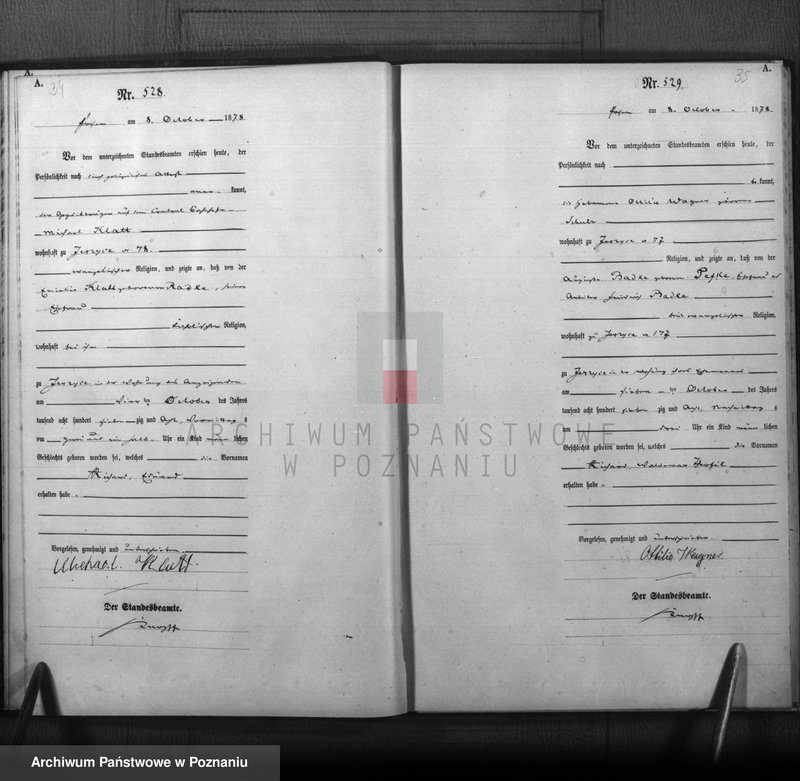 A.
34
Nr. 528.
Posen am 8. October 1878.
Vor dem unterzeichneten Standesbeamten erschien heute, der
Persönlichkeit nach
kannt,
Michael Klatt
wohnhaft zu Jerzyce N 78.
evangelischer Religion, und zeigte an, daß von der
Emilie Klatt geborenen Radke, seiner
Ehefrau
katholischer Religion,
wohnhaft bei ihm
zu Jerzyce in der Wohnung des Anzeigenden
am vier ten October des Jahres
tausend acht hundert sieben zig und acht, Vormittag s
um zwei und ein halb Uhr ein Kind männ lichen
Geschlechts geboren worden sei, welches die Vornamen
Richard, Eduard
erhalten habe.
Vorgelesen, genehmigt und unterschrieben
Michael Klatt.
Der Standesbeamte.
A.
35
Nr. 529.
Posen am 8. October 1878.
Vor dem unterzeichneten Standesbeamten erschien heute, der
Persönlichkeit nach
be kannt,
die Hebamme Ottilie Wagner geborene
Schulz
wohnhaft zu Jerzyce N 77
Religion, und zeigte an, daß von der
Auguste Badke geborenen Ehefrau des
Arbeiter Heinrich Badke
beide evangelischer Religion,
wohnhaft zu Jerzyce N 177
zu Jerzyce in der Wohnung ihres Ehemannes
am sieben ten October des Jahres
tausend acht hundert sieben zig und acht, Nachmittag s
um drei Uhr ein Kind männ lichen
Geschlechts geboren worden sei, welches die Vornamen
Richard, Waldemar
erhalten habe.
Vorgelesen, genehmigt und unterschrieben.
Ottilie Wagner.
Der Standesbeamte.
ARCHIWUM PAŃSTWOWE
W POZNANIU
Archiwum Państwowe w Poznaniu